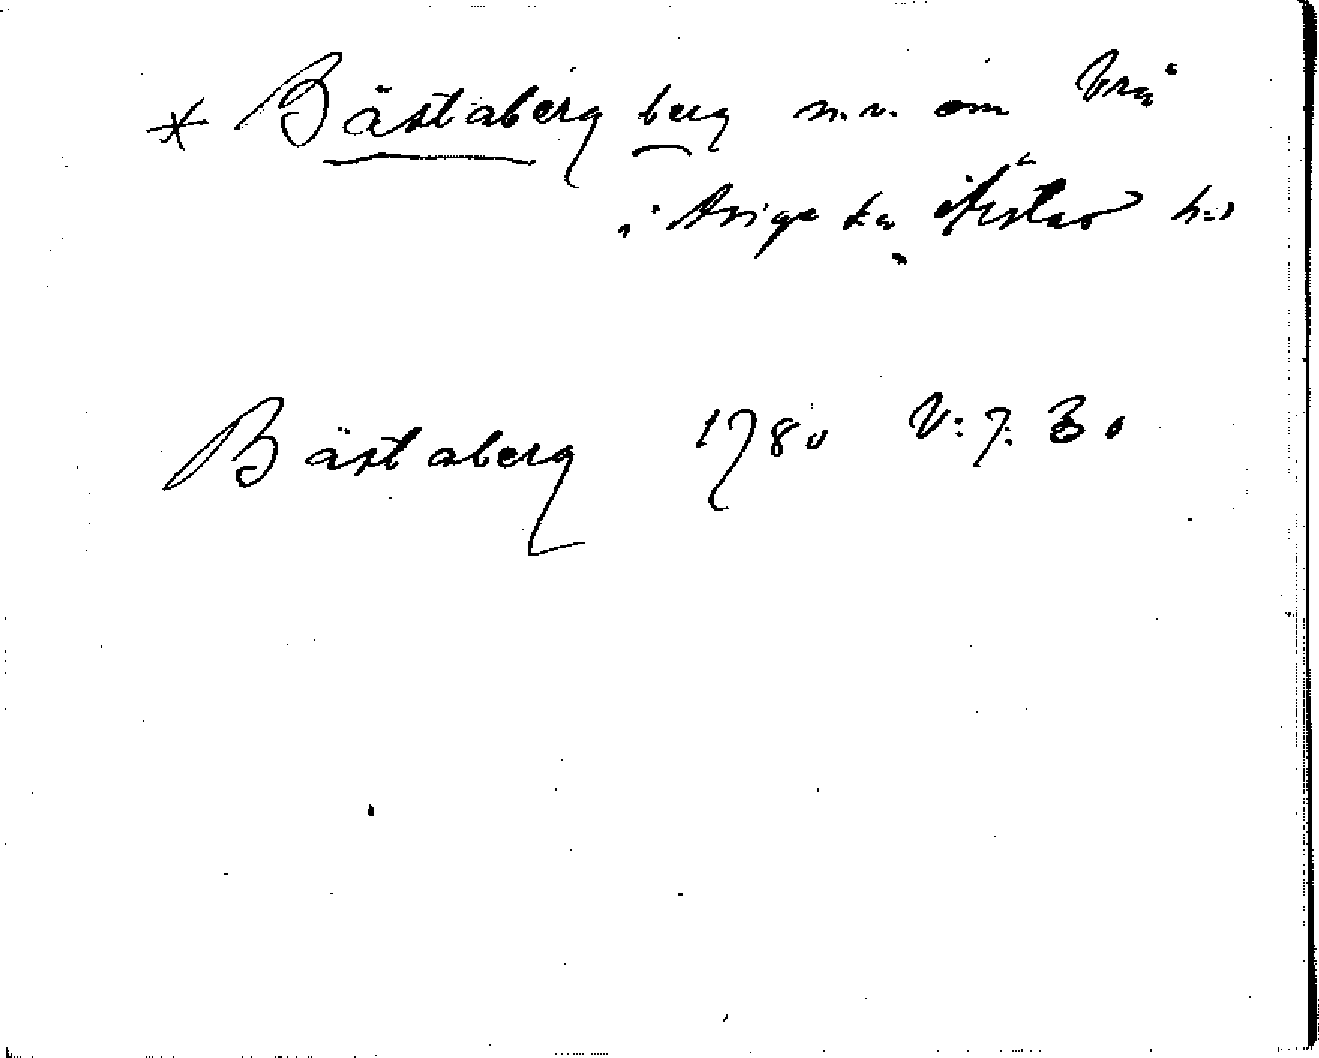 * Bästaberg berg n.v. om Vrå
i Asige sn Årstad hd
Bästaberg 1780 V: 7: 30